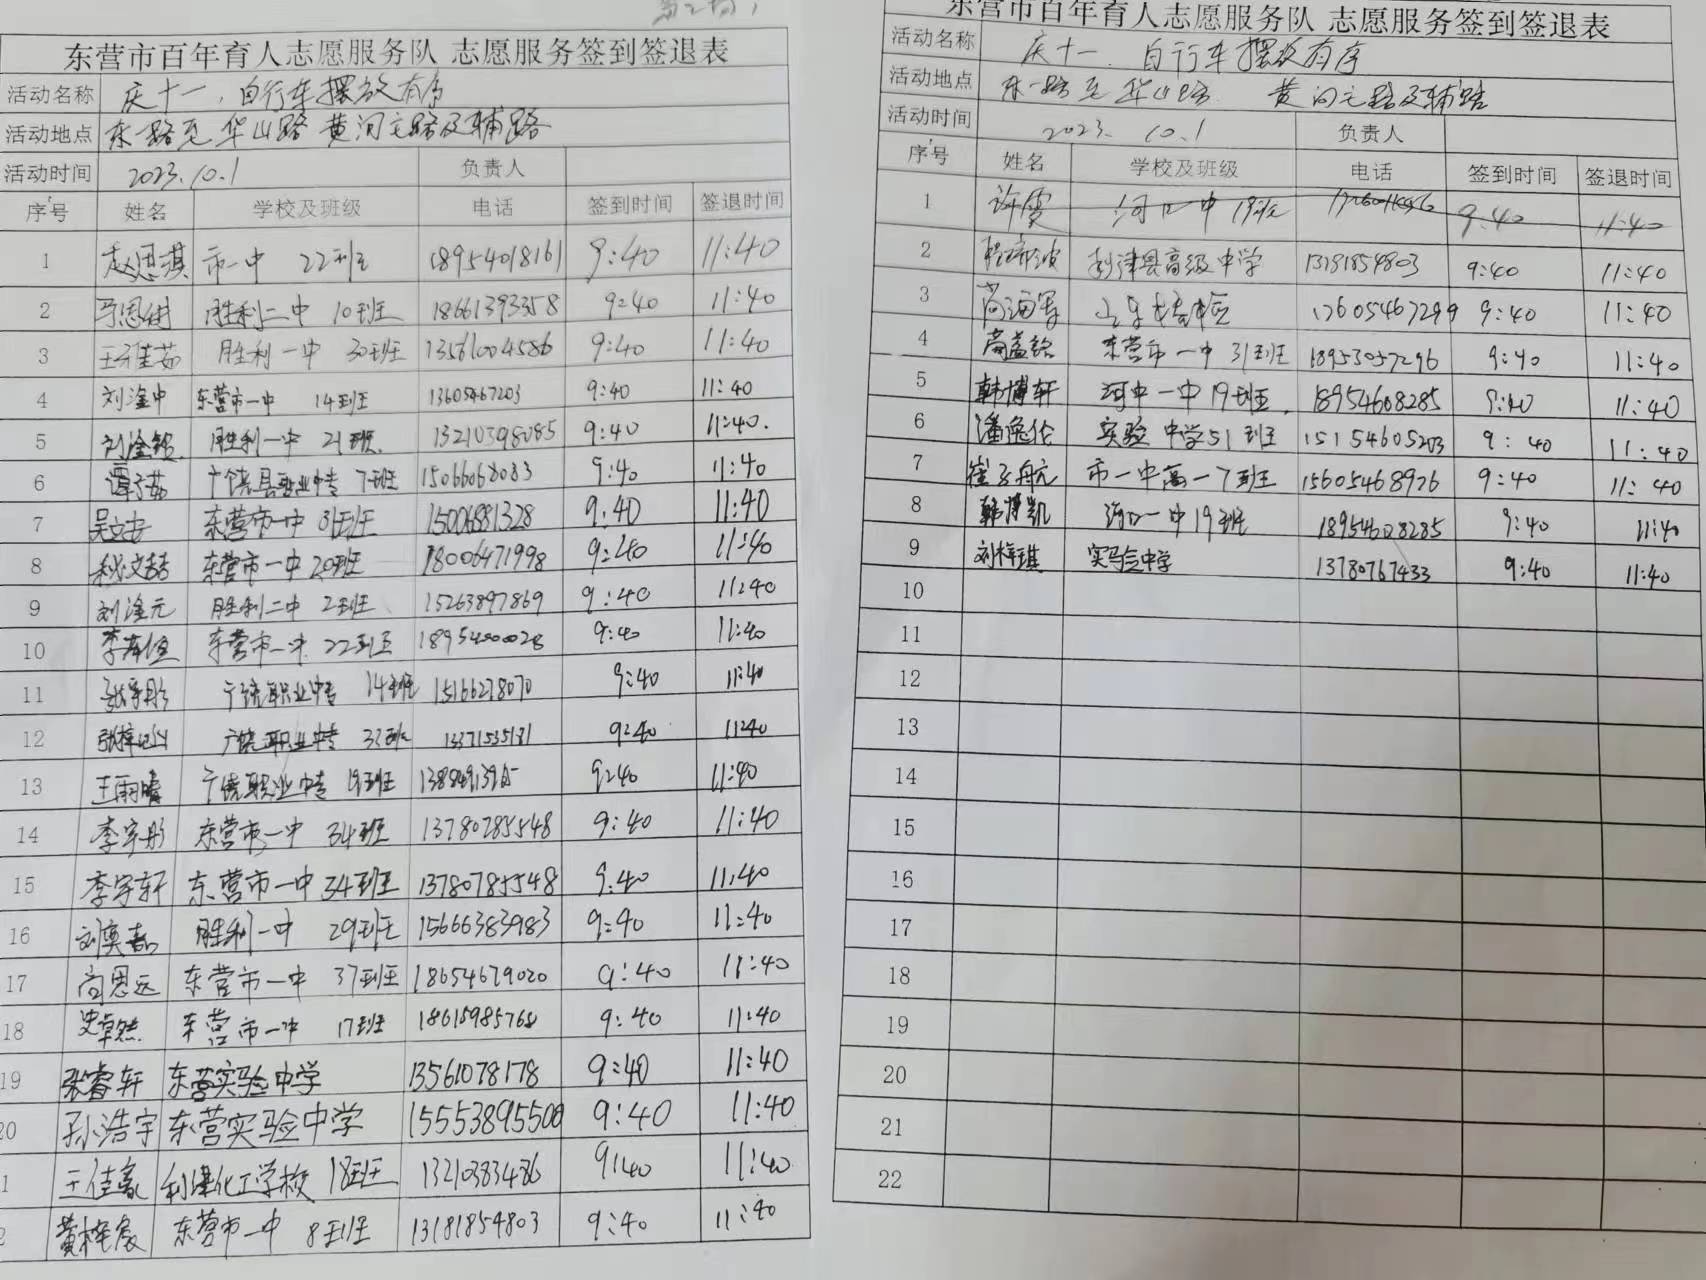 东营市百年育人志愿服务队 志愿服务签到签退表
活动名称 庆十一,自行车摆放有序
活动地点 东一路至华山路 黄河主路及辅路
活动时间 2023.10.1 负责人
序号 姓名 学校及班级 电话 签到时间 签退时间
1 赵思琪 市一中 22班 18954018161 9:40 11:40
2 胜利二中 10班 18661393358 9:40 11:40
3 王雅茹 胜利一中 30班 13561004586 9:40 11:40
4 刘淦中 东营市一中 14班 13605467203 9:40 11:40
5 刘淦 胜利一中 21班 13210398085 9:40 11:40.
6 谭子茹 广饶县职业中专 7班 15066068083 9:40 11:40
7 吴文安 东营市一中 31班 15006881328 9:40 11:40
8 东营市一中 20班 18006471998 9:40 11:40
9 刘淦元 胜利二中 2班 15263897869 9:40 11:40
10 东营市一中 22班 18954000028 9:40 11:40
11 广饶职业中专 14班 15166278070 9:40 11:40
12 广饶职业中专 9:40 11:40
13 王雨晴 广饶职业中专 19班 9:40 11:40
14 李宇彤 东营市一中 34班 13780785548 9:40 11:40
15 李宇轩 东营市一中 34班 13780785548 9:40 11:40
16 刘奕嘉 胜利一中 29班 15666383983 9:40 11:40
17 尚思远 东营市一中 37班 18654679020 9:40 11:40
18 史卓然 东营市一中 17班 18615985768 9:40 11:40
19 张睿轩 东营实验中学 13561078178 9:40 11:40
20 孙浩宇 东营实验中学 15553895500 9:40 11:40
1 王佳豪 利津化工学校 18班 13210383486 9:40 11:40
2 黄梓宸 东营市一中 8班 13181854803 9:40 11:40
东营市百年育人志愿服务队 志愿服务签到签退表
活动名称 庆十一.自行车摆放有序
活动地点 东一路至华山路 黄河主路及辅路
活动时间 2023.10.1 负责人
序号 姓名 学校及班级 电话 签到时间 签退时间
1 许雯 河口一中 19班 9:40 11:40
2 利津县高级中学 13181854803 9:40 11:40
3 尚海军 17605467299 9:40 11:40
4 东营市一中 31班 18953057296 9:40 11:40
5 韩博轩 一中 19班. 18954608285 9:40 11:40
6 潘逸伦 实验中学51班 15154605203 9:40 11:40
7 崔子航 市一中高一7班 15605468926 9:40 11:40
8 韩博凯 河口一中19班 18954608285 9:40 11:40
9 刘梓琪 实验中学 13780767433 9:40 11:40
10
11
12
13
14
15
16
17
18
19
20
21
22